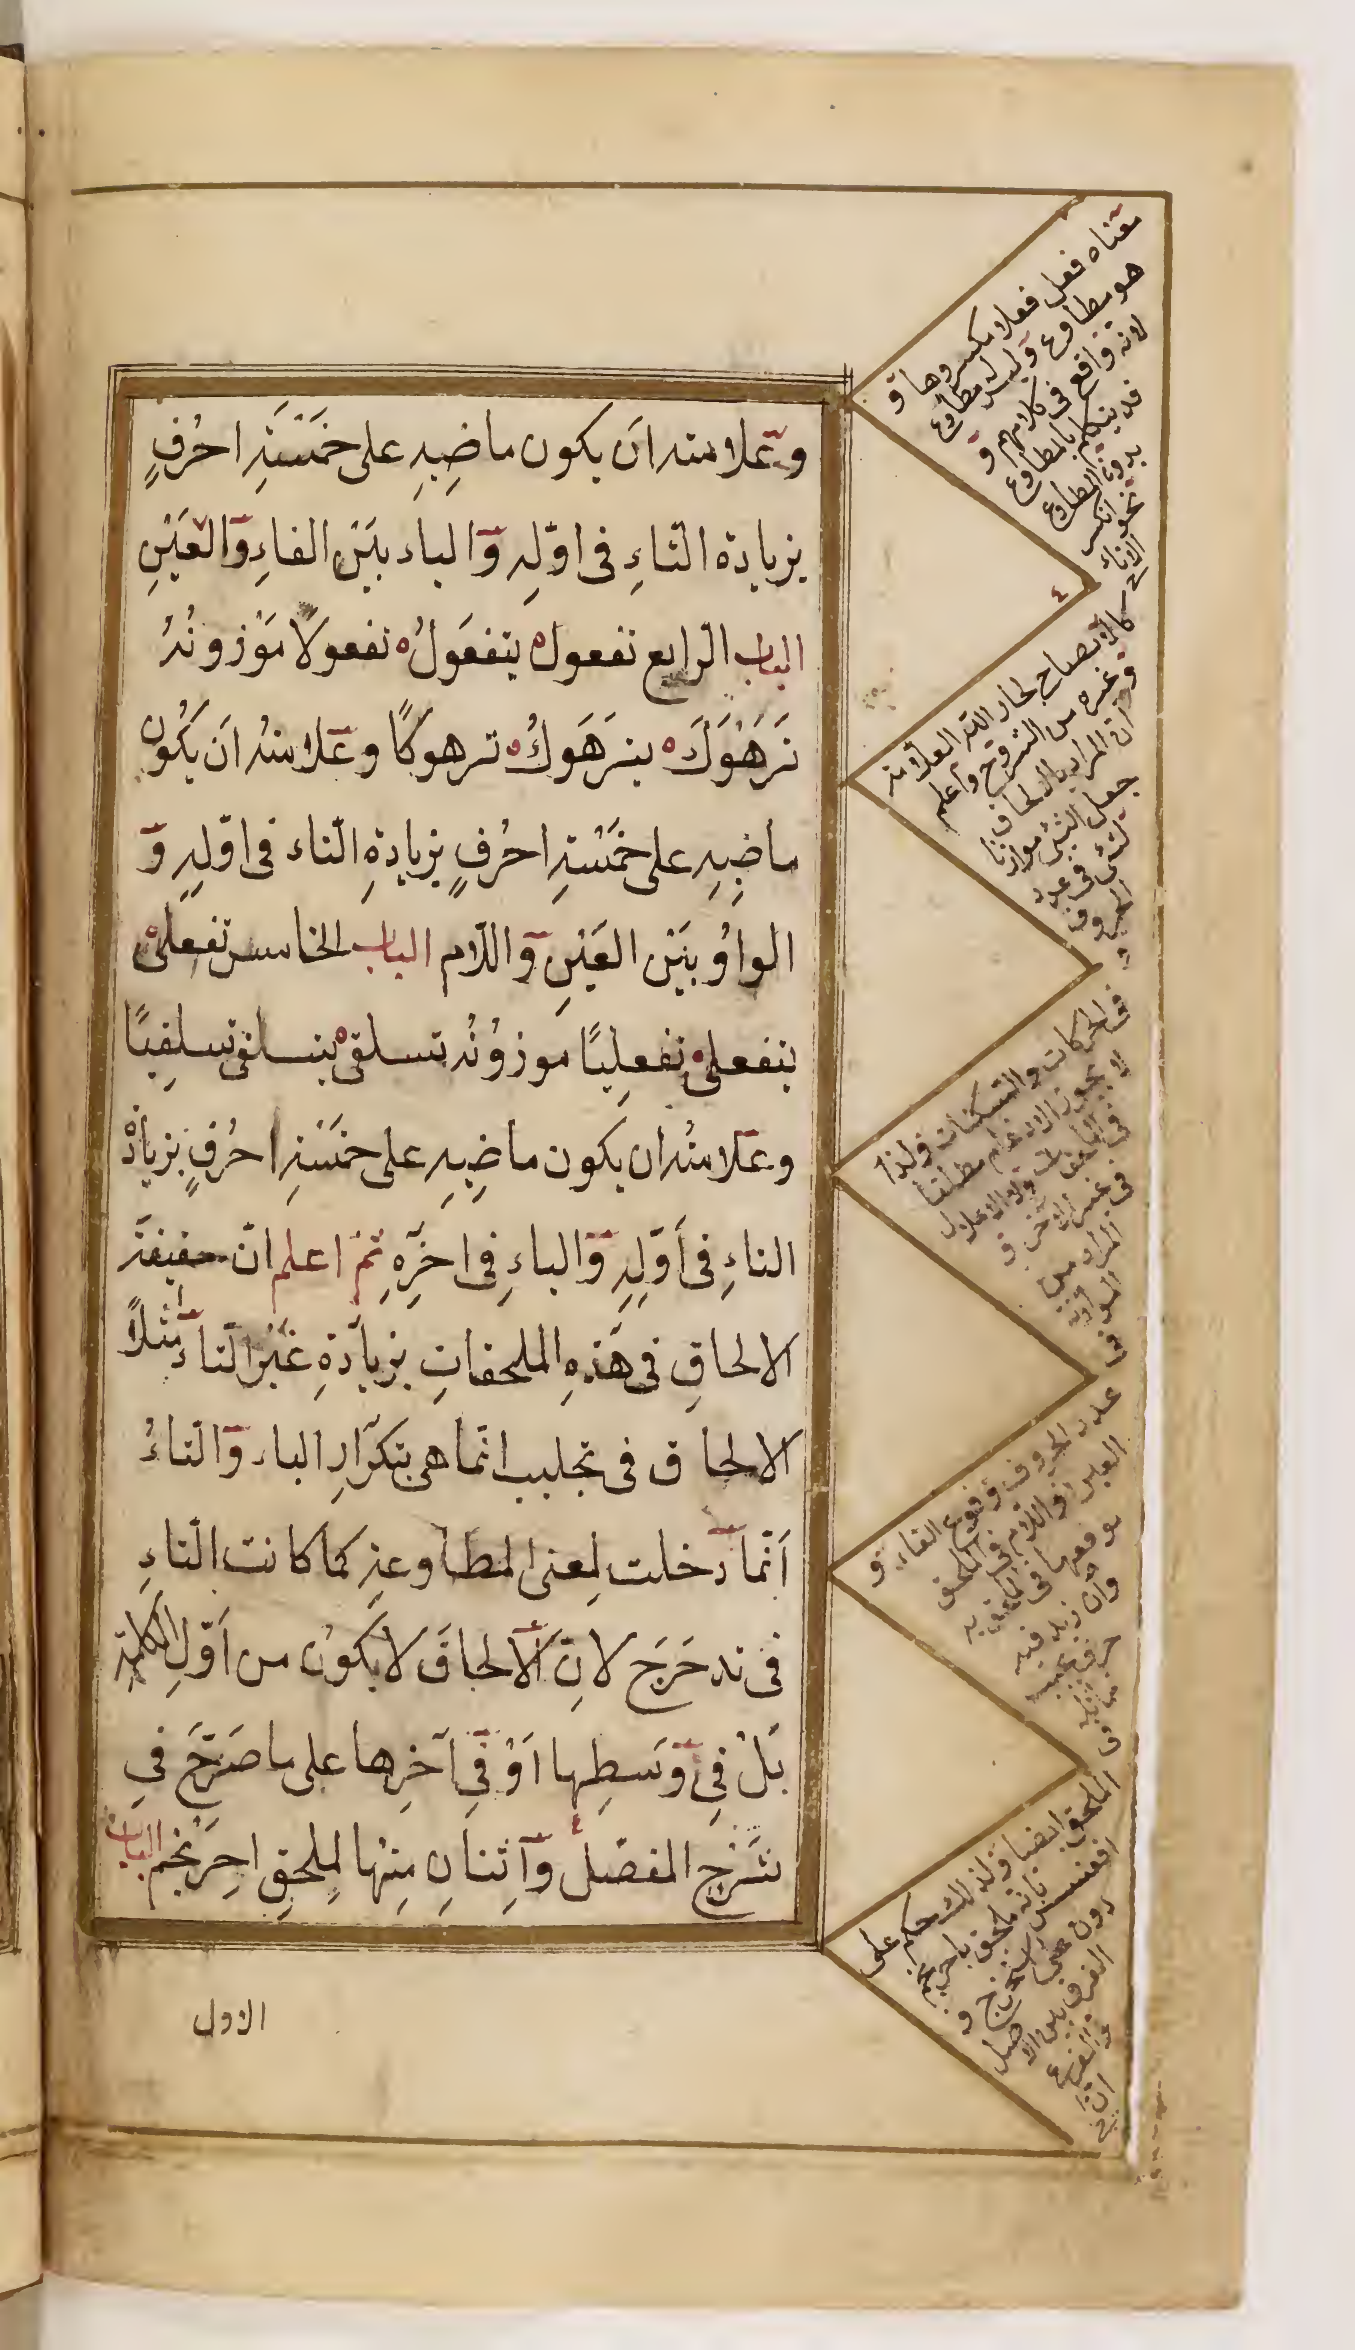 وعلامته ان يكون ماضيه على خمسة احرف
بزيادة التاء فى اوّله والياء بين الفاء والعين
الباب الرابع تفعول يتفعول تفعولا موزونه
ترهوك يترهوك ترهوكا وعلامته ان يكون
ماضيه على خمسة احرف بزيادة التاء فى اوّله و
الواو بين العين واللام الباب الخامس تفعلى
يتفعلى تفعليا موزونه تسلقى يتسلقى تسلقيا
وعلامته ان يكون ماضيه على خمسة احرف بزيادة
التاء فى أوّله والياء فى اخره ثم اعلم انّ حقيقة
الالحاق فى هذه الملحقات بزيادة غير التاء مثلا
الالحاق فى تجلبب انّما هى بتكرار الباء والتاء
انّما دخلت لمعنى المطاوعة كما كانت التاء
فى تدحرج لانّ الالحاق لا يكون من اوّل الكلمة
بل فى وسطها او فى آخرها على ما صرّح فى
شرح المفصّل واثنان منها لملحق احرنجم الباب
الاول
معناه فعل فعلا مكسروها و
هو مطاوع وليس له مطاوع
لانه واقع فى كلامهم و
قد يتكلم بالمطاوع
بدون المطاوع
نحو انكسر
الاناء
وغيره من الشروح واعلم
ان المراد بالالحاق
جعل الشئ موازنا
لشئ فى عدد
الحروف
و
فى الحركات والسكنات ولذا
لا يجوز الادغام مطلقا
فى الملحقات ولا الاعلال
فى غير الآخر و
المراد من
الموازنة
فى
عدد الحروف وقوع الفاء و
العين واللام فى الملحق
موقعها فى الملحق به
وان زيد فيه
حرف
الملحق ايضا ولذلك حكم على
اقعنسس بانه ملحق باحرنجم
دون استخرج و
الفرق بين الاصل
والفرع